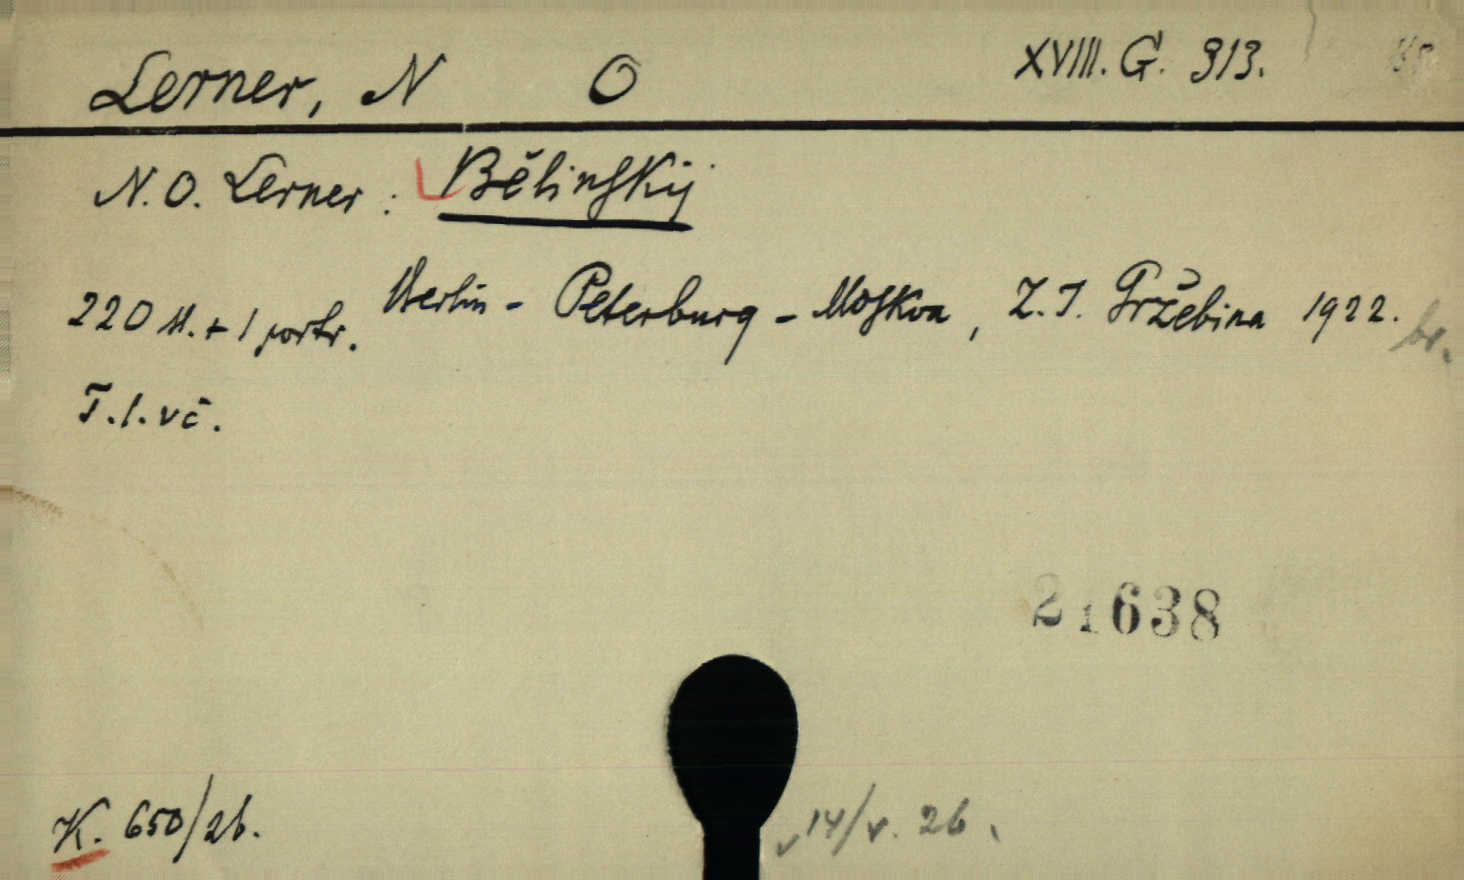 Lerner, N O XVIII. G. 313.
N. O. Lerner : Bělinskij
Berlin - Peterburg - Moskva, Z. I. Gržebina 1922. br.
220 st. + 1 portr.
T. l. vč.
21638
K. 650/26. 14/V. 26.